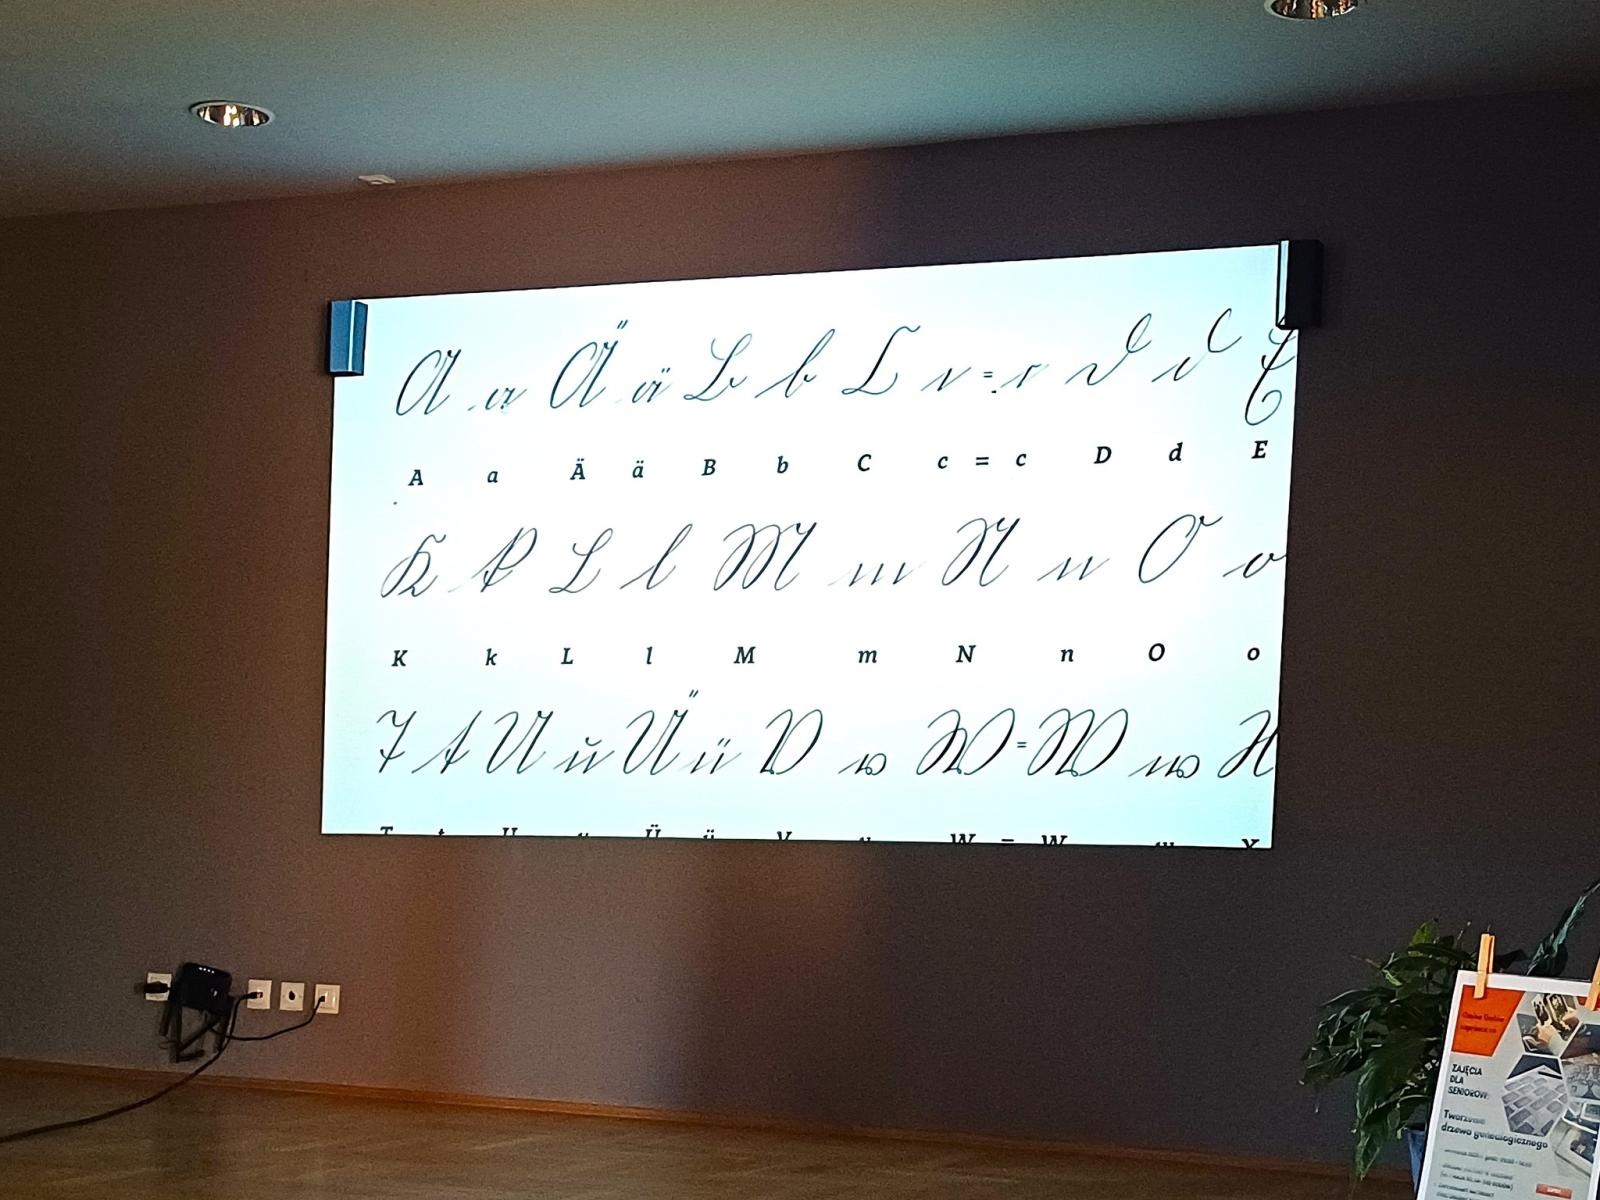 A a Ä ä B b C c = c D d E
A a Ä ä B b C c = c D d E
K k L l M m N n O o
K k L l M m N n O o
T t U u Ü ü V v W = W w X
T t U u Ü ü V v W = W w X
ZAJĘCIA
DLA
SENIORÓW
Tworzenie
drzewa genealogicznego